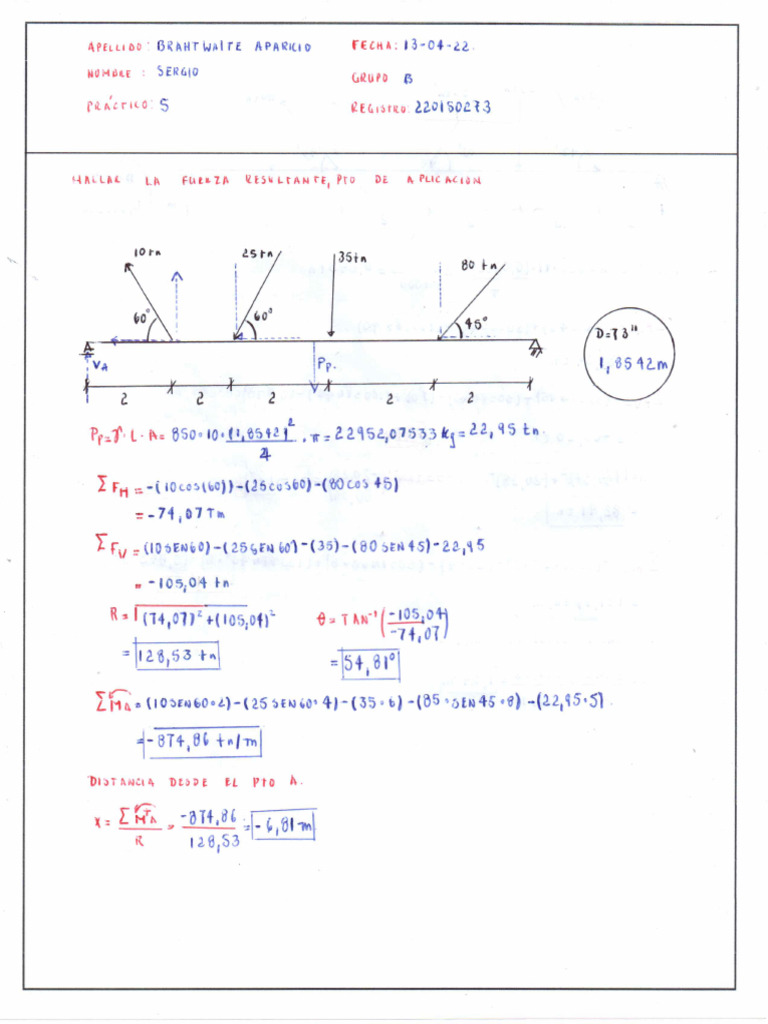 APELLIDO: BRAHTWAITE APARICIO FECHA: 13-04-22.
NOMBRE : SERGIO GRUPO B
PRÁCTICO: 5 REGISTRO: 220150273
HALLAR LA FUERZA RESULTANTE, PTO DE APLICACION
10 tn 25 tn 35 tn 80 tn
60° 60° 45° D=73"
A 1,8542 m
VA Pp.
2 2 2 2 2
Pp=γ·L·A= 850·10·(1,8542)²/4 · π = 22952,07533 kg = 22,95 tn
ΣFH = -(10cos(60))-(25cos60)-(80cos 45)
= -74,07Tm
ΣFV = (10SEN60)-(25SEN60)-(35)-(80SEN45)-22,95
= -105,04 tn
R= √(74,07)²+(105,04)² θ = TAN⁻¹(-105,04/-74,07)
= 128,53 tn = 54,81°
ΣMA = (10SEN60·2)-(25SEN60·4)-(35·6)-(85·SEN45·8)-(22,95·5).
= -874,86 tn/m
DISTANCIA DESDE EL PTO A.
X = ΣMA/R = -874,86/128,53 = -6,81 m